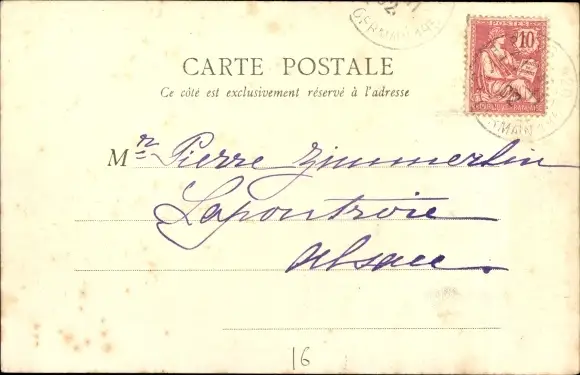 CARTE POSTALE
Ce côté est exclusivement réservé à l'adresse
POSTES
10
RÉPUBLIQUE FRANÇAISE
02
GERMAIN
Mr Pierre Zimmerlin
Lapoutroie
Alsace.
16